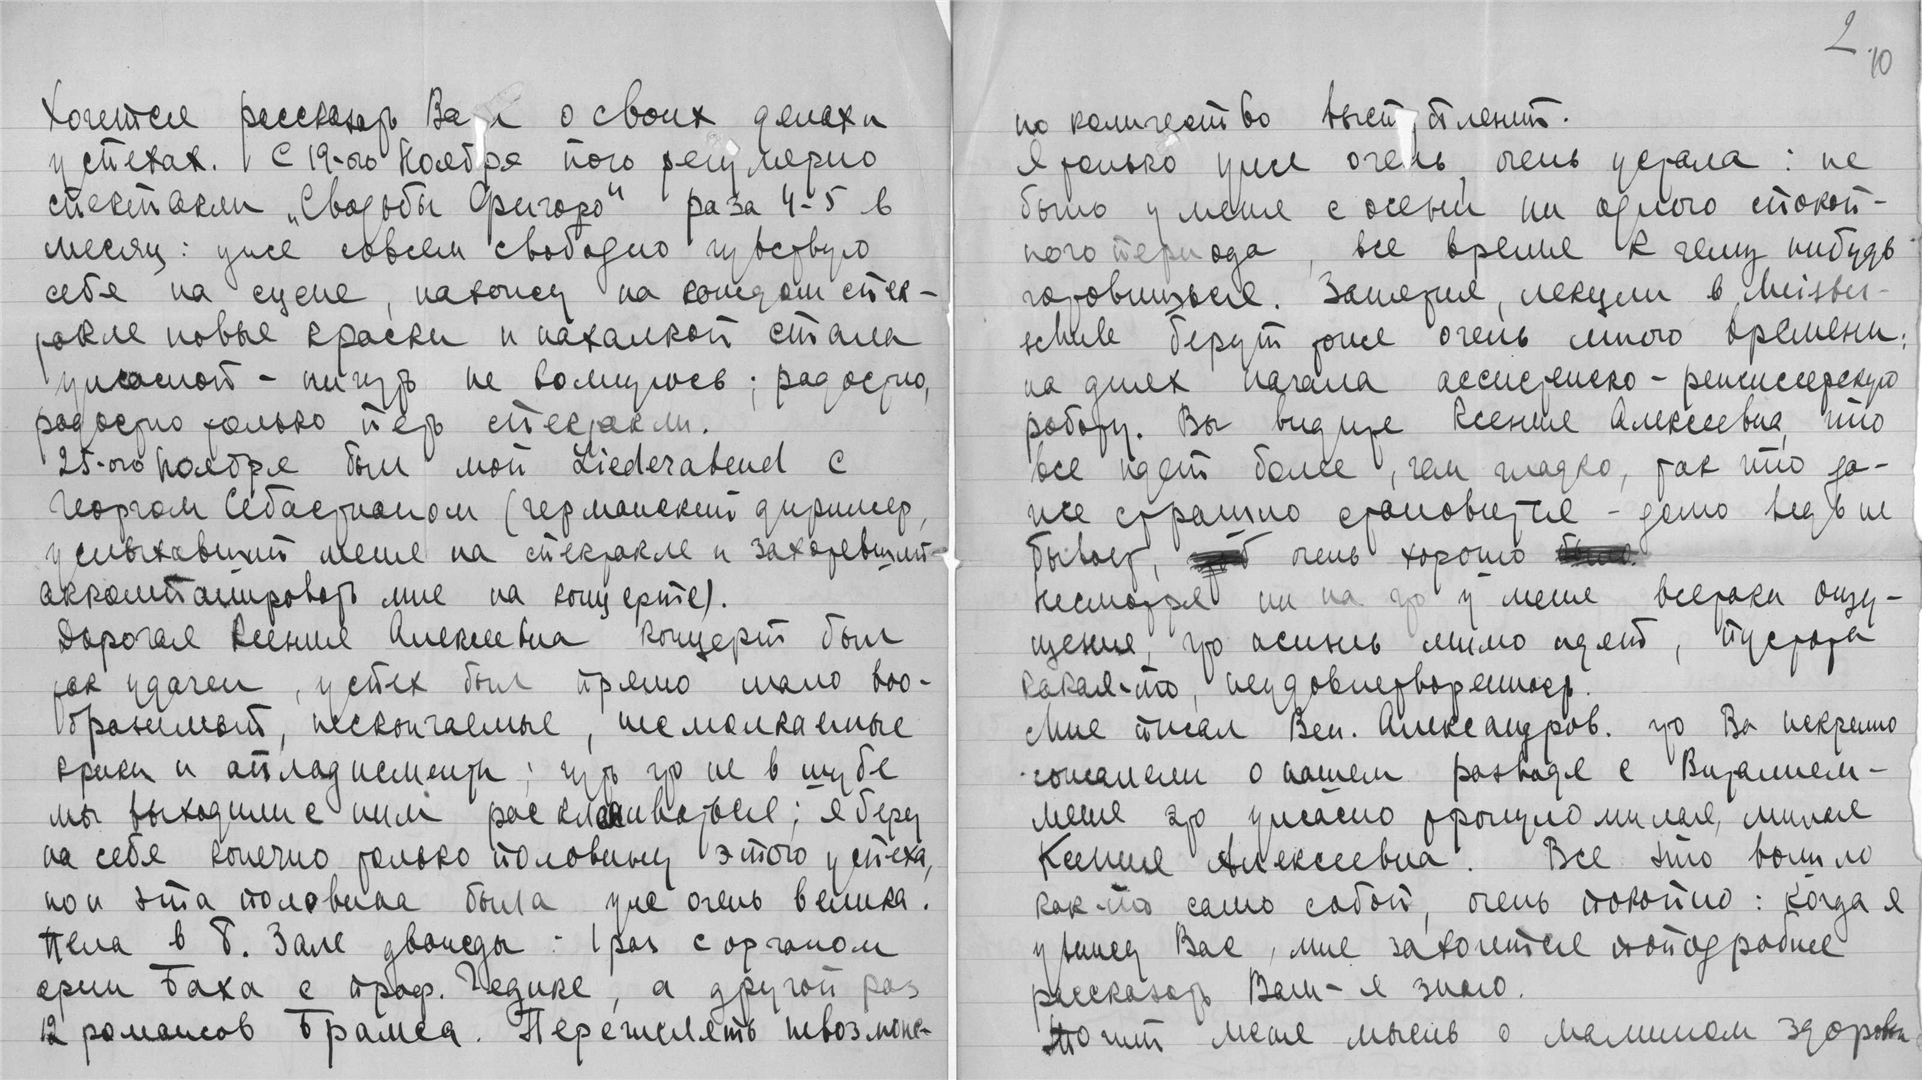 Хочется рассказать Вам о своих делах и
успехах. С 19-ого Ноября пою регулярно
спектакли „Свадьбы Фигаро“ раза 4-5 в
месяц: уже совсем свободно чувствую
себя на сцене, нахожу на каждом спек-
такле новые краски и нахалкой стала
ужасной - ничуть не волнуюсь; радостно,
радостно только петь спектакли.
25-ого Ноября был мой Liederabend с
Георгом Себастианом (германский дирижер,
услыхавший меня на спектакле и захотевший
аккомпанировать мне на концерте).
Дорогая Ксения Алексеевна концерт был
так удачен, успех был прямо мало воо-
бразимый, нескончаемые, несмолкаемые
крики и аплодисменты; чуть что не в шубе
мы выходили с ним раскланиваться; я беру
на себя конечно только половину этого успеха,
но и эта половина была уже очень велика.
Пела в Б. Зале дважды: 1 раз с органом
арии Баха с проф. Гедике, а другой раз
12 романсов Брамса. Перечислять невозмож-
2
10
но количество выступлений.
Я только уже очень, очень устала: не
было у меня с осени ни одного спокой-
ного периода, все время к чему нибудь
готовишься. Занятия, лекции в Meister-
schule берут тоже очень много времени;
на днях начала ассистентско-режиссерскую
работу. Вы видите Ксения Алексеевна, что
все идет более, чем гладко, так что да-
же страшно становится - долго ведь не
бывает, очень хорошо
Несмотря ни на что у меня всетаки ощу-
щение, что жизнь мимо идет, пустота
какая-то, неудовлетворенность.
Мне писал Вен. Александров. что Вы искренно
сожалели о нашем разводе с Виталием -
меня это ужасно тронуло милая, милая
Ксения Алексеевна. Все это вышло
как-то само собой, очень спокойно: когда я
увижу Вас, мне захочется поподробнее
рассказать Вам - я знаю.
Точит меня мысль о мамином здоровьи